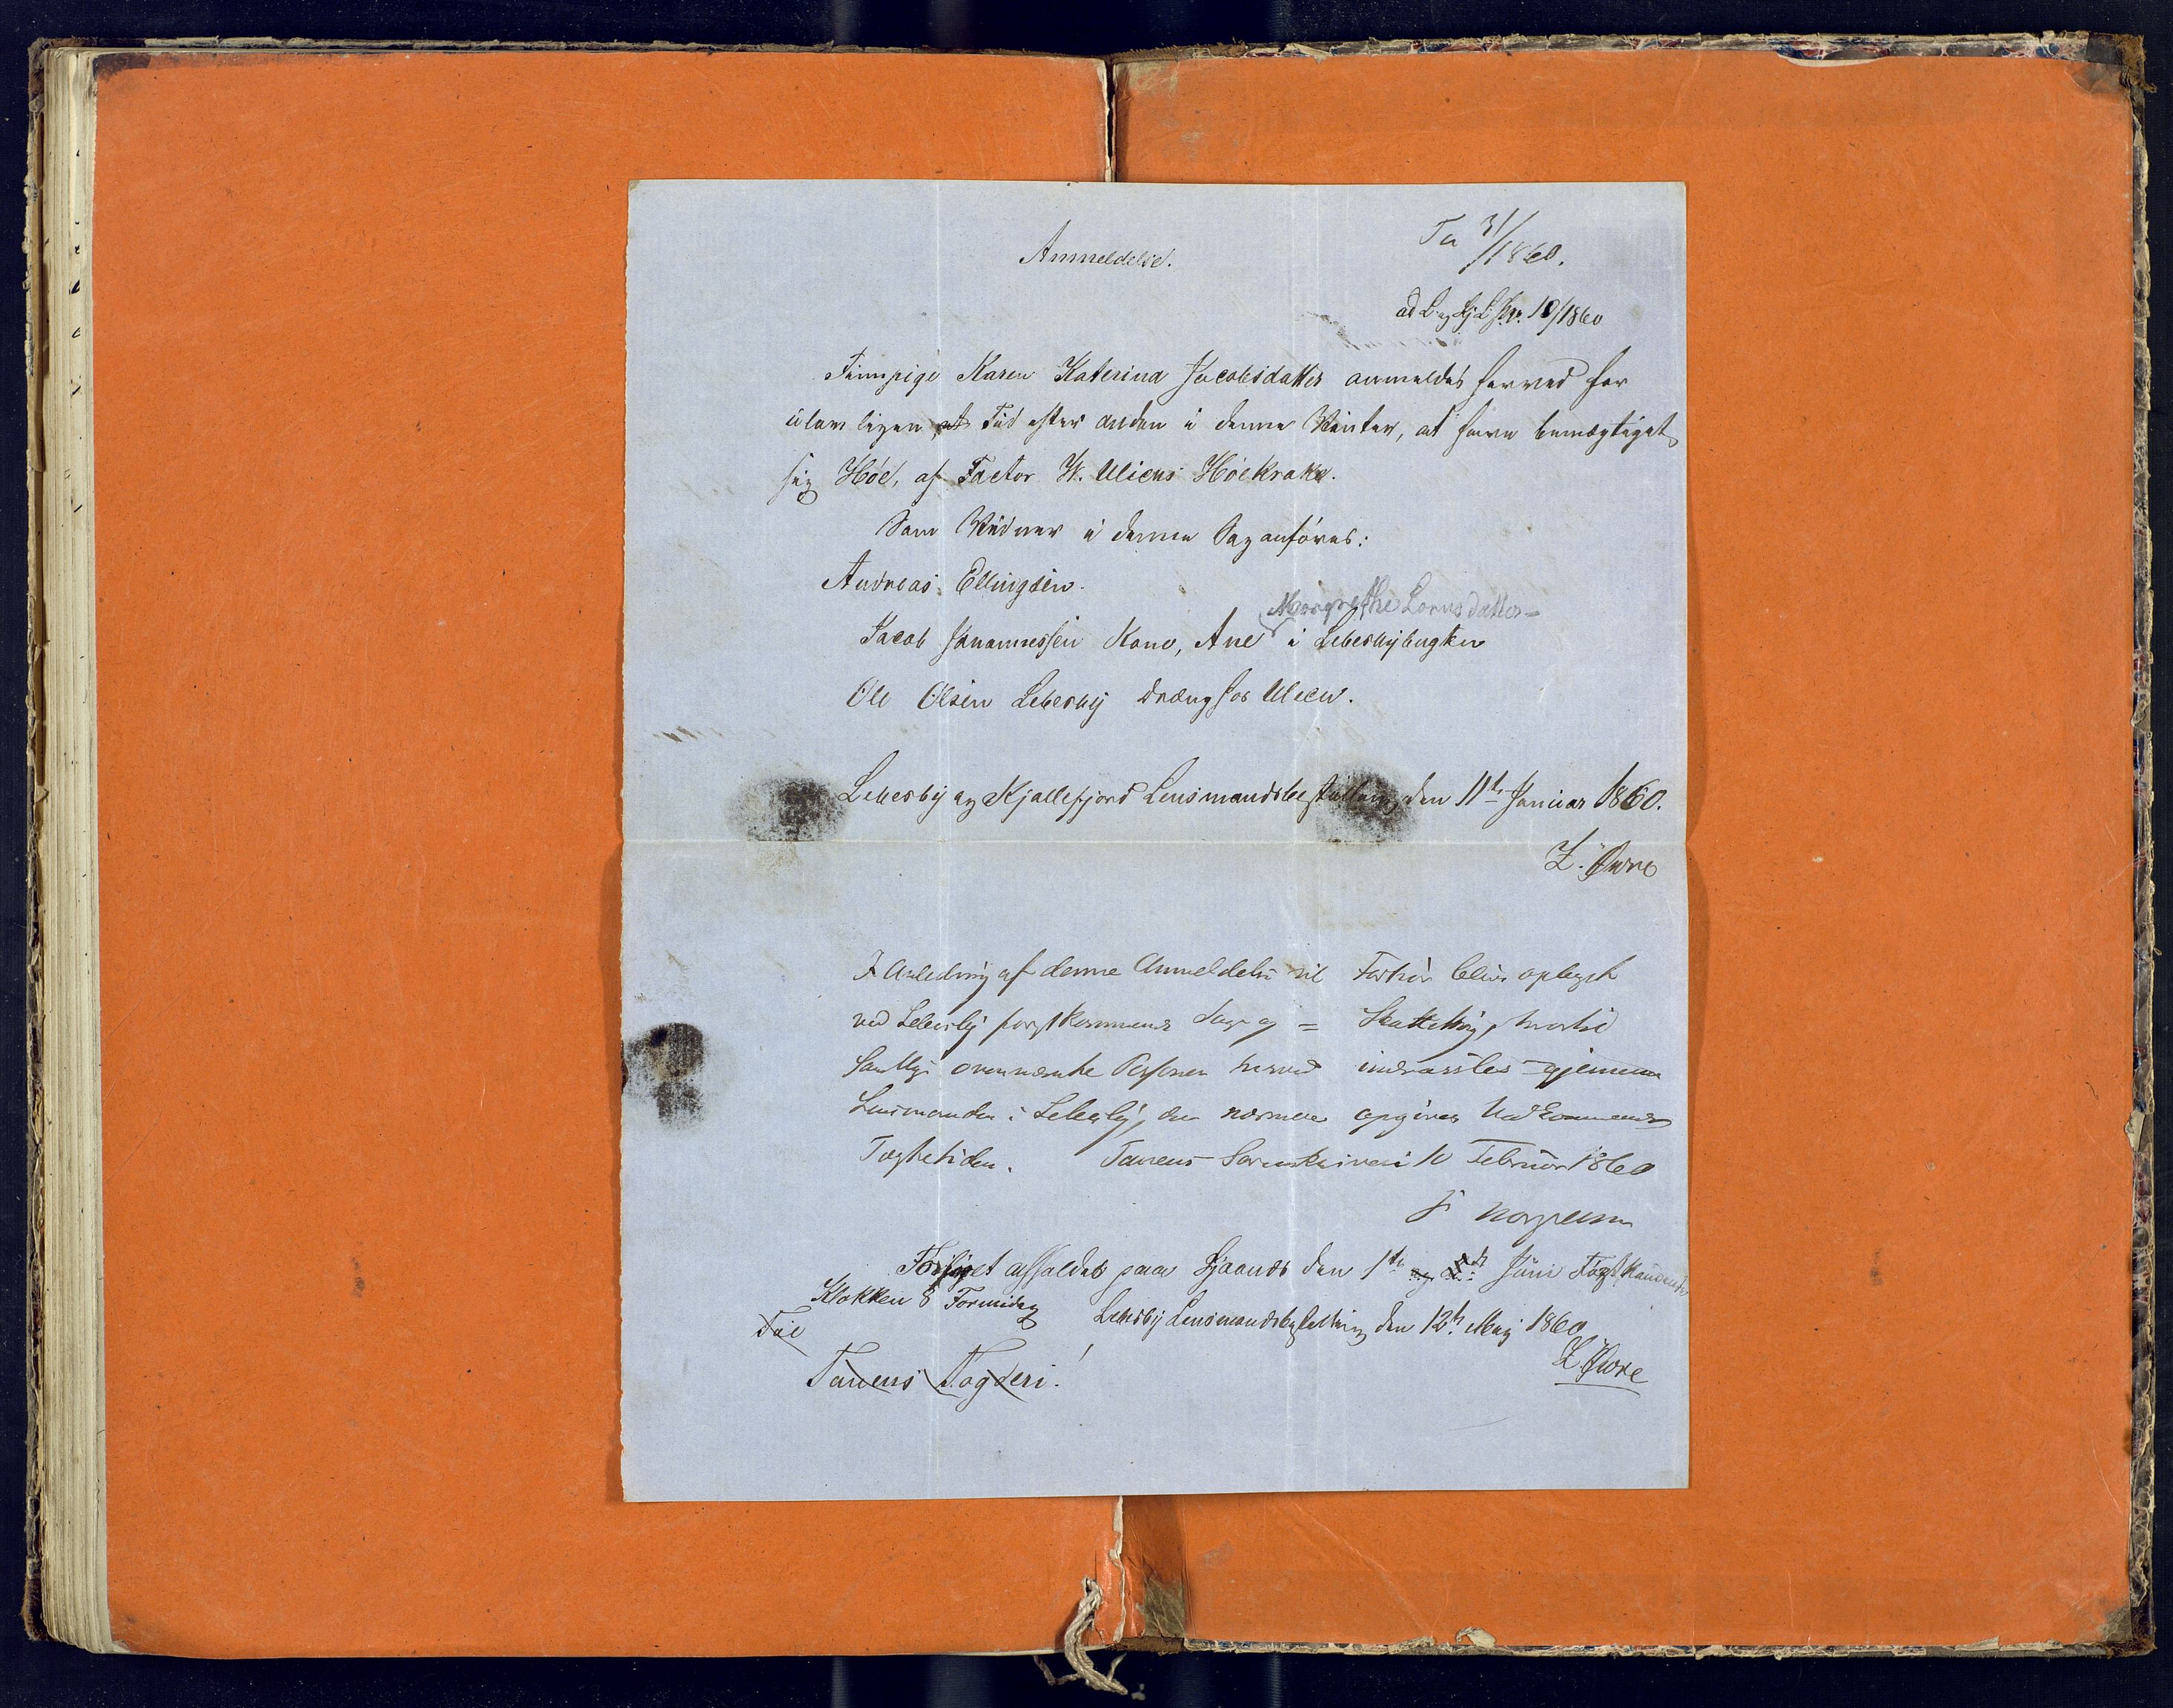 Anmeldelse.
Ta 31/1860.
ad L. og Kj. L. Jn. 10/1860
Finnpige Karen Katerina Jacobsdatter anmeldes herved for
ulovligen, at Tid efter anden i denne Vinter, at have bemægtiget
sig Höe, af Factor W. Uliens Höekrake.
Som Vidner i denne Sag anföres:
Andreas Ellingsen.
Margrethe Larsdatter
Jacob Johannessen Kone, Ane i Lebesbybugten
Ole Olsen Lebesby Dreng hos Ulien.
Lebesby og Kjøllefjord Lensmandsbestilling den 11te Januar 1860.
Z. Øwre
I Anledning af denne Anmeldelse vil Forhör blive optaget
ved Lebesby forstkommende Sage og = Skattething, hvortil
samtlige ovennævnte Personer herved indvarsles gjennem
Lensmanden i Lebesby, der nærmere opgiver Vedkommende
Tægtetiden. Tanens Sorenskriveri 10 Februar 1860
Forhöret afholdes paa den 1te og 2de Juni förstkommende
Klokken 8 Formidag Lebesby Lensmandsbestilling den 12te Maj 1860
Z. Øwre
Til
Tanens Fogderi!